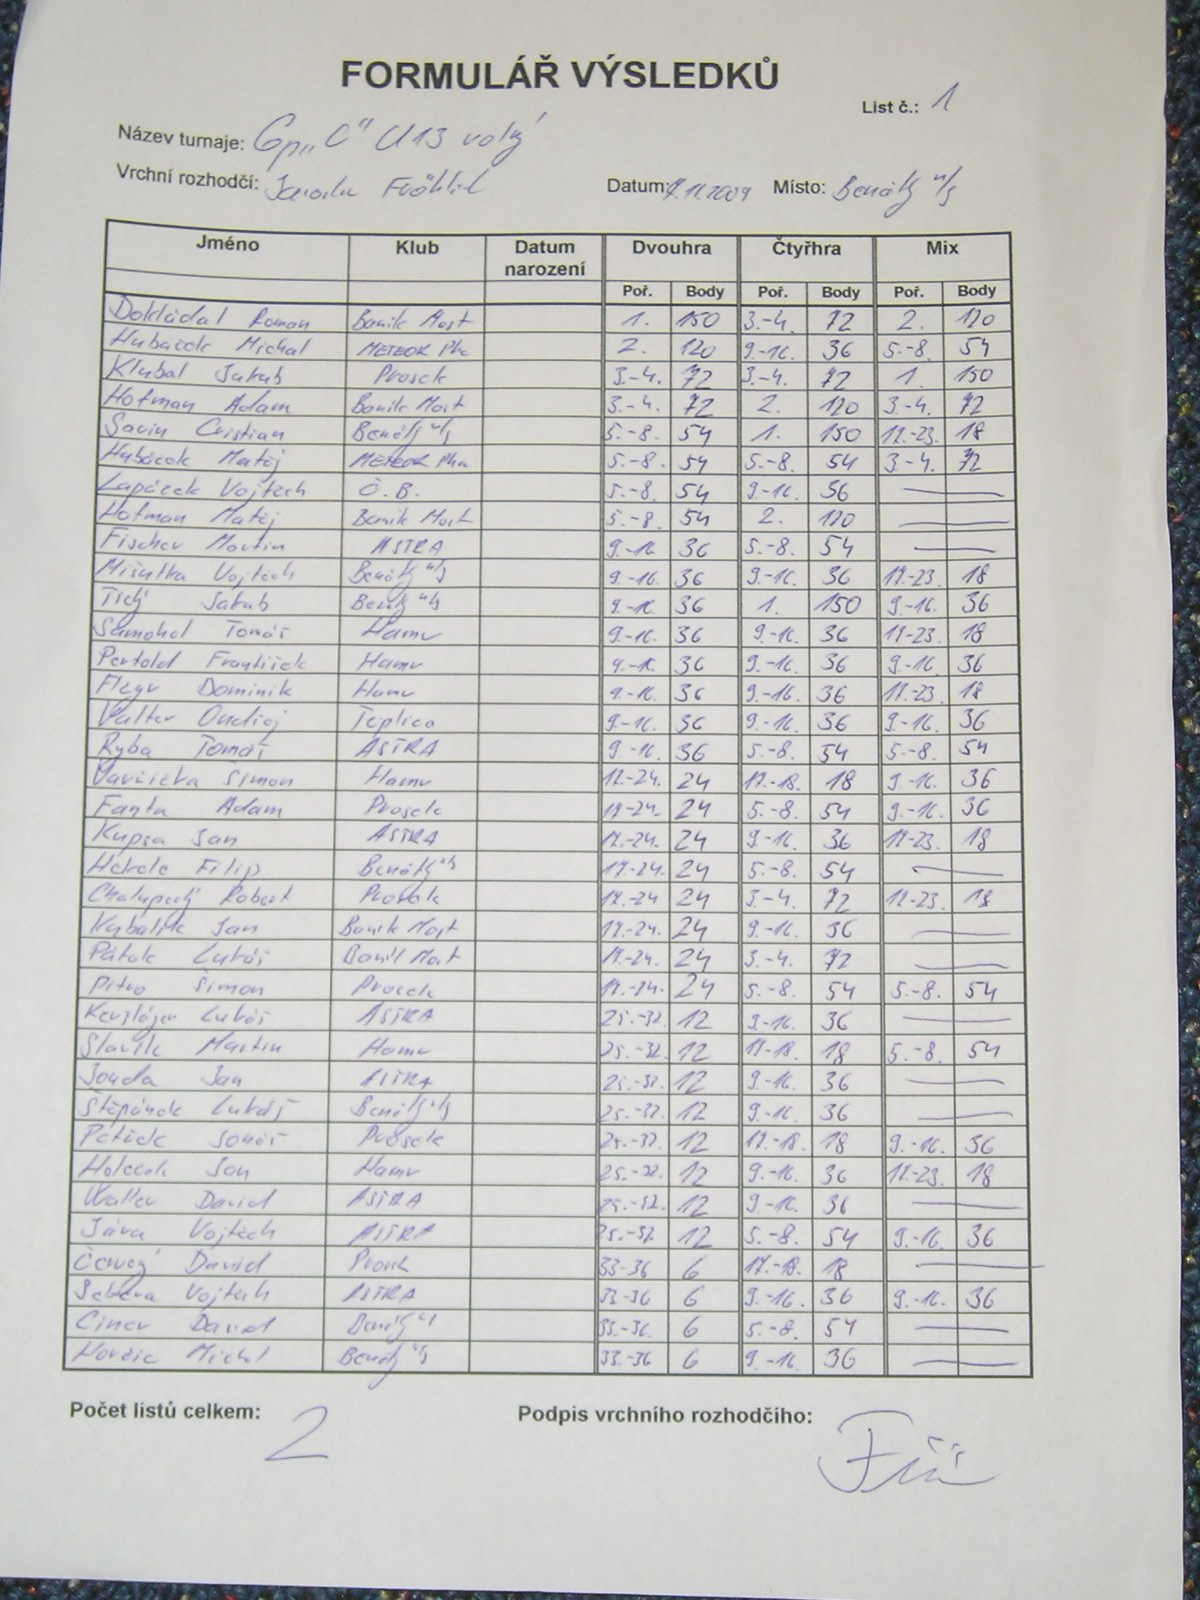 FORMULÁŘ VÝSLEDKŮ
List č.: 1
Název turnaje: Gp „C" U13 volný
Vrchní rozhodčí: Fröhlich
Datum: 7.11.2009 Místo: Benátky n/J
Jméno Klub Datum narození Dvouhra Čtyřhra Mix
Poř. Body Poř. Body Poř. Body
Dokládal Roman Baník Most 1. 150 3.-4. 72 2. 120
Hubáček Michal METEOR Pha 2. 120 9.-16. 36 5.-8. 54
Klubal Jakub Prosek 3.-4. 72 3.-4. 72 1. 150
Hofman Adam Baník Most 3.-4. 72 2. 120 3.-4. 72
Savin Cristian Benátky n/J 5.-8. 54 1. 150 17.-23. 18
Hubáček Matěj METEOR Pha 5.-8. 54 5.-8. 54 3-4. 72
Lapáček Vojtěch Č.B. 5.-8. 54 9.-16. 36
Hofman Matěj Baník Most 5.-8. 54 2. 120
Fischer Martin ASTRA 9.-16 36 5.-8. 54
Mišutka Vojtěch Benátky n/J 9.-16. 36 9.-16. 36 17.-23. 18
Tichý Jakub Benátky n/J 9.-16. 36 1. 150 9.-16. 36
Samohel Tomáš Hamr 9.-16. 36 9.-16. 36 17-23. 18
Pertold František Hamr 9.-16 36 9.-16. 36 9.-16. 36
Flégr Dominik Hamr 9.-16 36 9.-16. 36 17.-23. 18
Valter Ondřej Teplice 9.-16. 36 9.-16. 36 9.-16. 36
Ryba Tomáš ASTRA 9.-16 36 5.-8. 54 5.-8. 54
Šimon Hamr 17.-24. 24 17.-18. 18 9.-16. 36
Fanta Adam Prosek 17-24. 24 5.-8. 54 9.-16. 36
Kupsa Jan ASTRA 17.-24. 24 9.-16. 36 17-23. 18
Filip Benátky n/J 17.-24. 24 5.-8. 54
Chalupecký Robert Prosek 17.-24 24 3.-4. 72 17-23. 18
Kybalík Jan Baník Most 17.-24. 24 9.-16. 36
Pátek Lukáš Baník Most 17.-24. 24 3.-4. 72
Petro Šimon Prosek 17.-24. 24 5.-8. 54 5.-8. 54
Lukáš ASTRA 25.-32. 12 9.-16. 36
Slavík Martin Hamr 25.-32. 12 17-18. 18 5.-8. 54
Jouda Jan ASTRA 25.-32. 12 9.-16. 36
Štěpánek Lukáš Benátky n/J 25.-32. 12 9.-16. 36
Prosek 25.-32. 12 17.-18. 18 9.-16. 36
Holeček Jan Hamr 25.-32. 12 9.-16. 36 17-23. 18
Walter David ASTRA 25.-32. 12 9.-16. 36
Jára Vojtěch ASTRA 25.-32. 12 5.-8. 54 9.-16. 36
Červený David Prosek 33-36 6 17.-18. 18
Vojtěch ASTRA 33.-36 6 9.-16. 36 9.-16. 36
David Benátky n/J 33.-36. 6 5.-8. 54
Michal Benátky n/J 33.-36 6 9.-16. 36
Počet listů celkem: 2
Podpis vrchního rozhodčího: